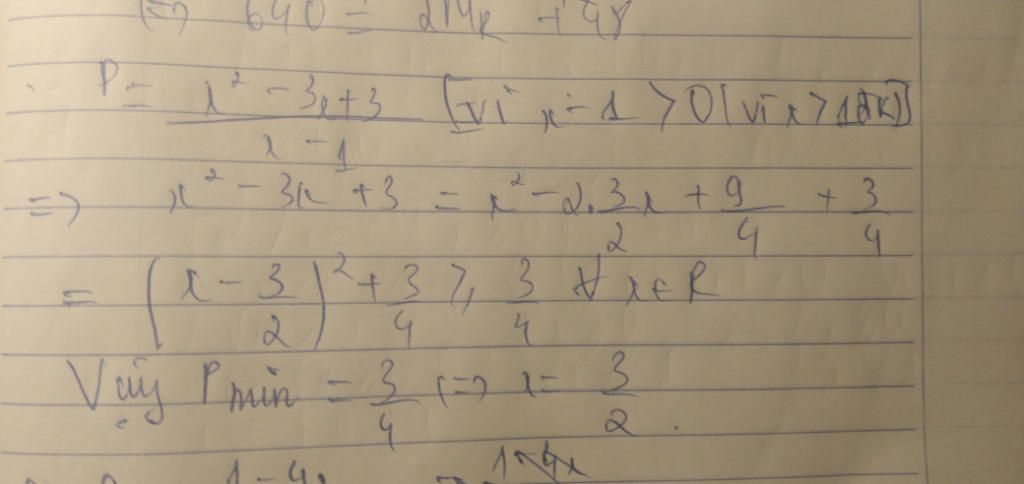 (=) 640 = 2MR + 48
P = \frac{x^2 - 3x + 3}{x - 1} [vì x - 1 > 0 (vì x > 1 ĐK)]
=> x^2 - 3x + 3 = x^2 - 2.\frac{3}{2}x + \frac{9}{4} + \frac{3}{4}
= \left(\frac{x - 3}{2}\right)^2 + \frac{3}{4} ≥ \frac{3}{4} ∀ x ∈ R
Vậy P min = \frac{3}{4} (=) x = \frac{3}{2}.
1 - 4x